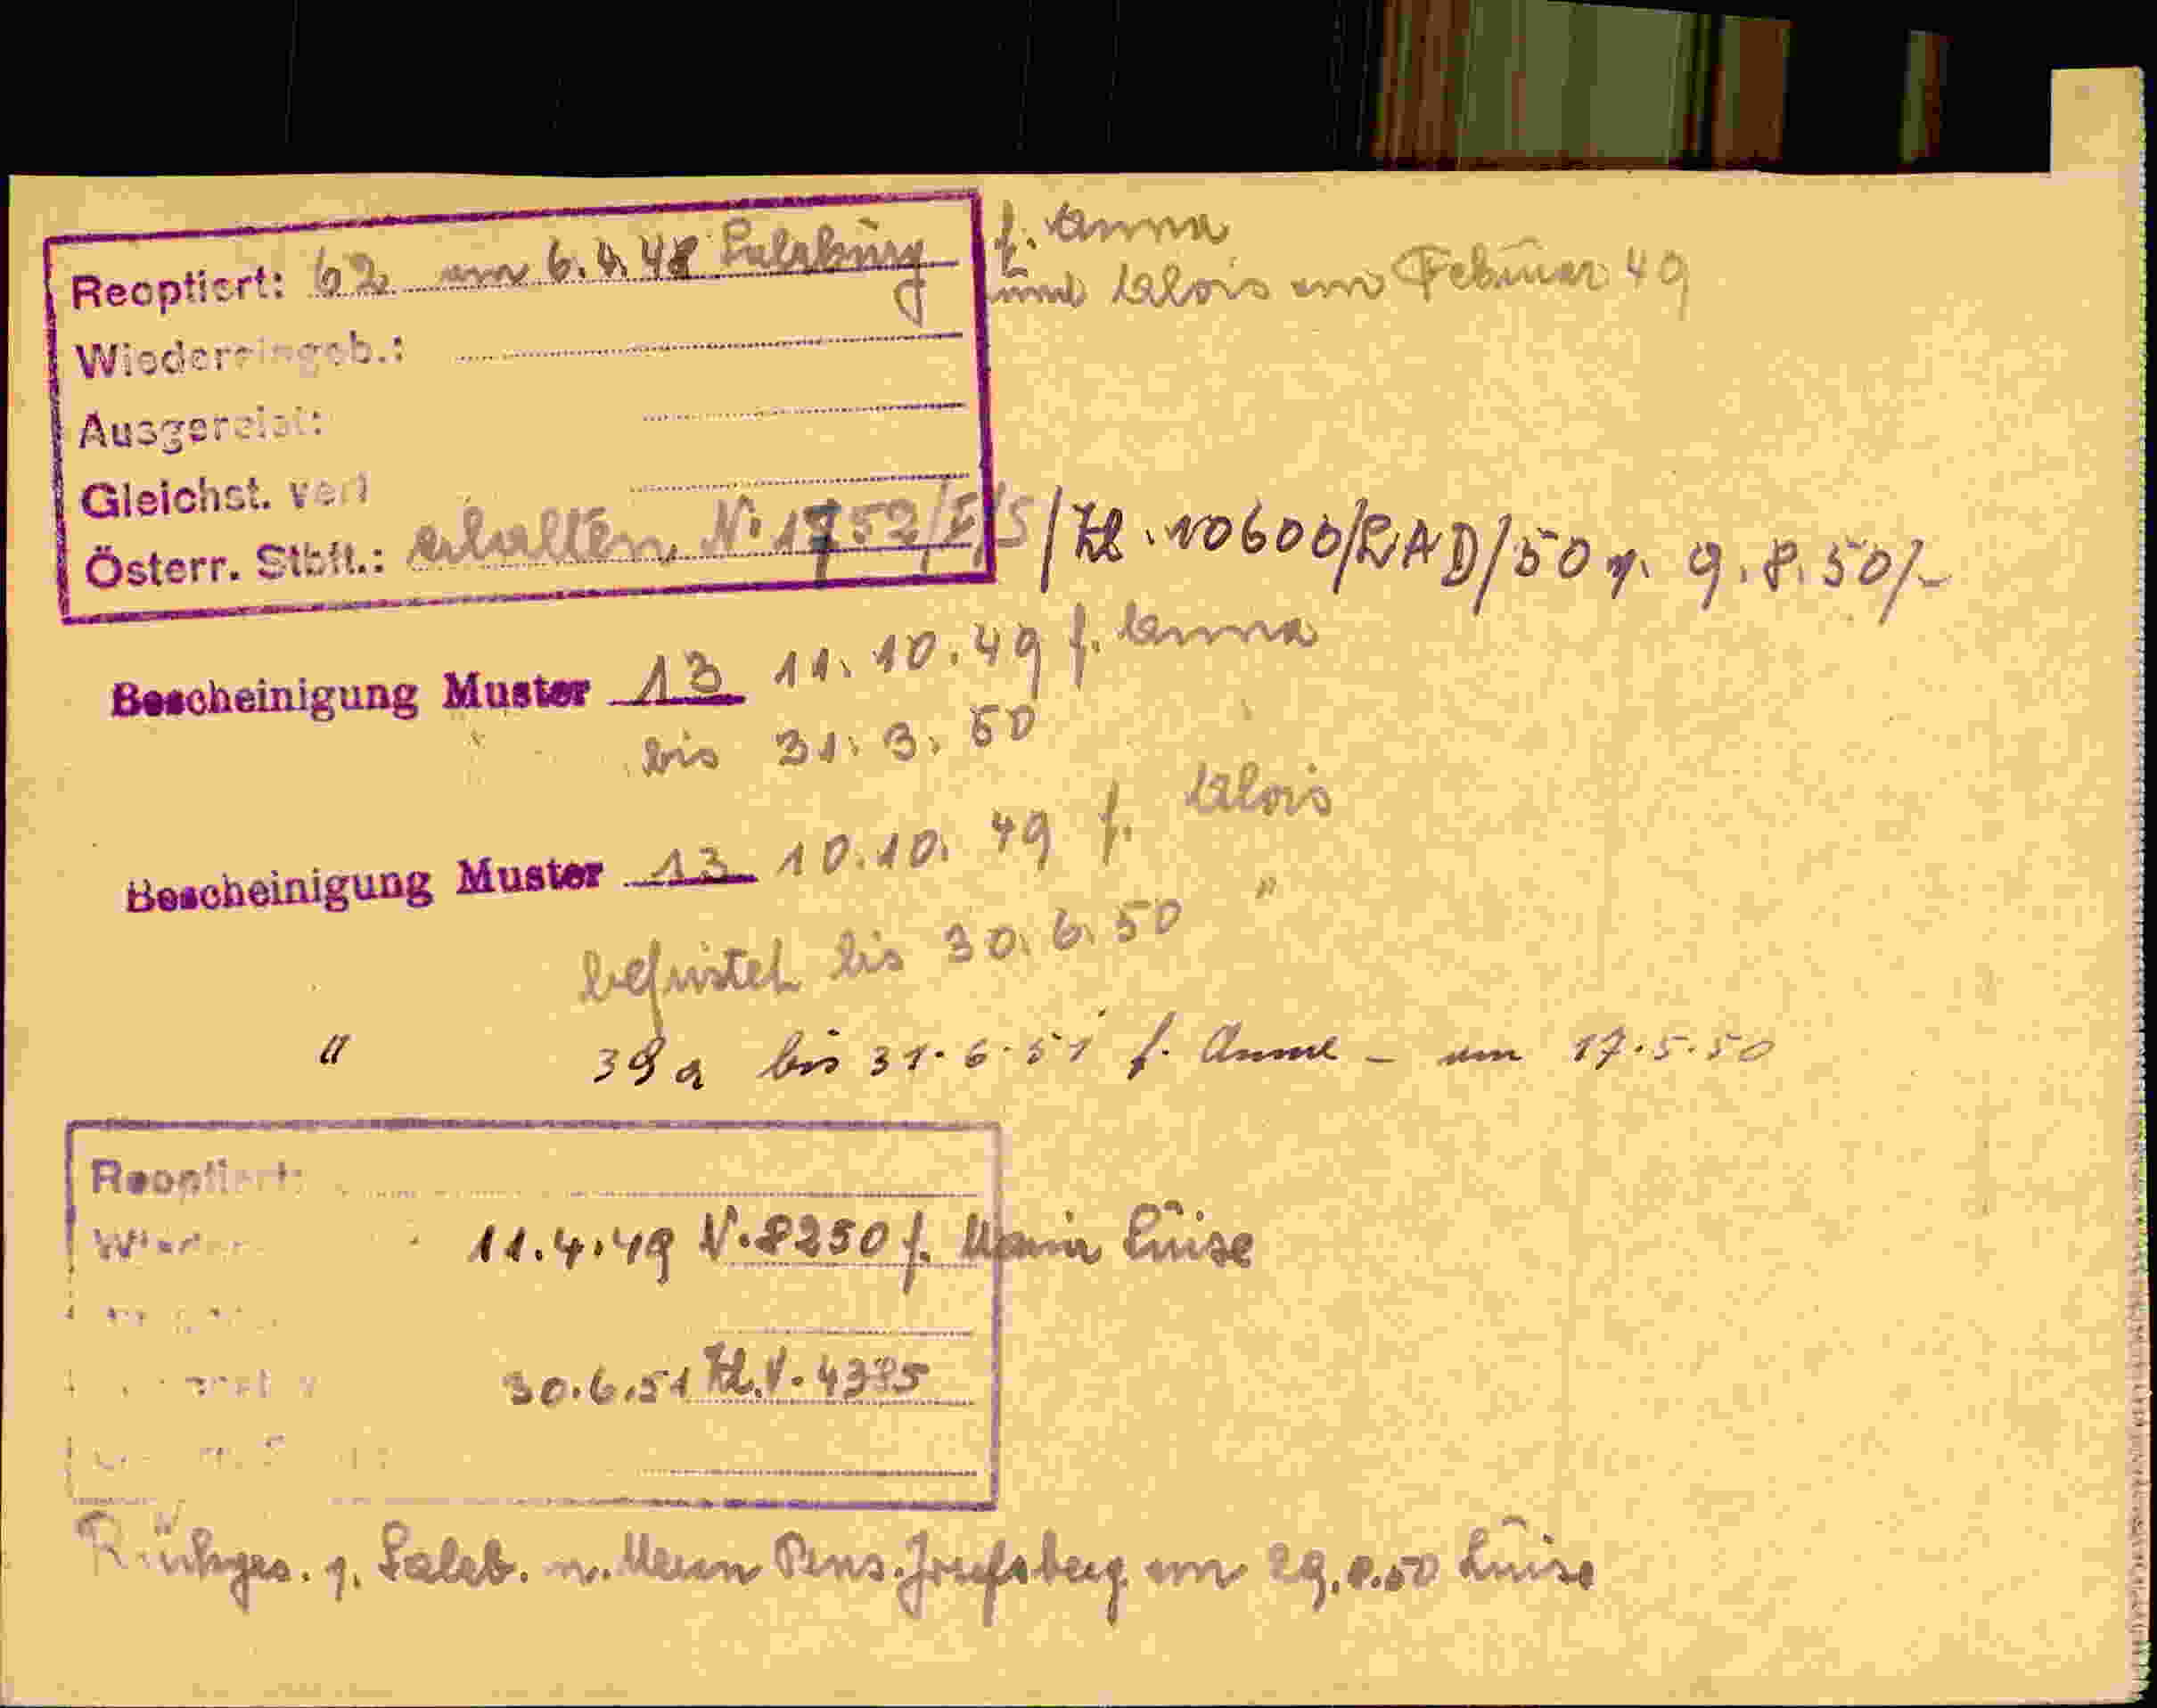 Reoptiert: 62 am 6.4.48 Salzburg f. Anna
und Alois am Februar 49
Wiedereingeb.:
Ausgereist:
Gleichst. verl
Österr. Stbft.: erhalten N. 1752/I/S/Zl. 10600/RAD/50 v. 9.8.50/-
Bescheinigung Muster 13 11.10.49 f. Anna
bis 31.3.50
Bescheinigung Muster 13 10.10.49 f. Alois
befristet bis 30.6.50 "
" 39a bis 31.6.51 f. Anna - am 17.5.50
Reoptiert:
11.4.49 N. 8250 f. Maria Luise
30.6.51 Zl. V. 4385
Rückges. v. Salzb. n. Meran Pens. Josefsberg am 29.8.50 Luise